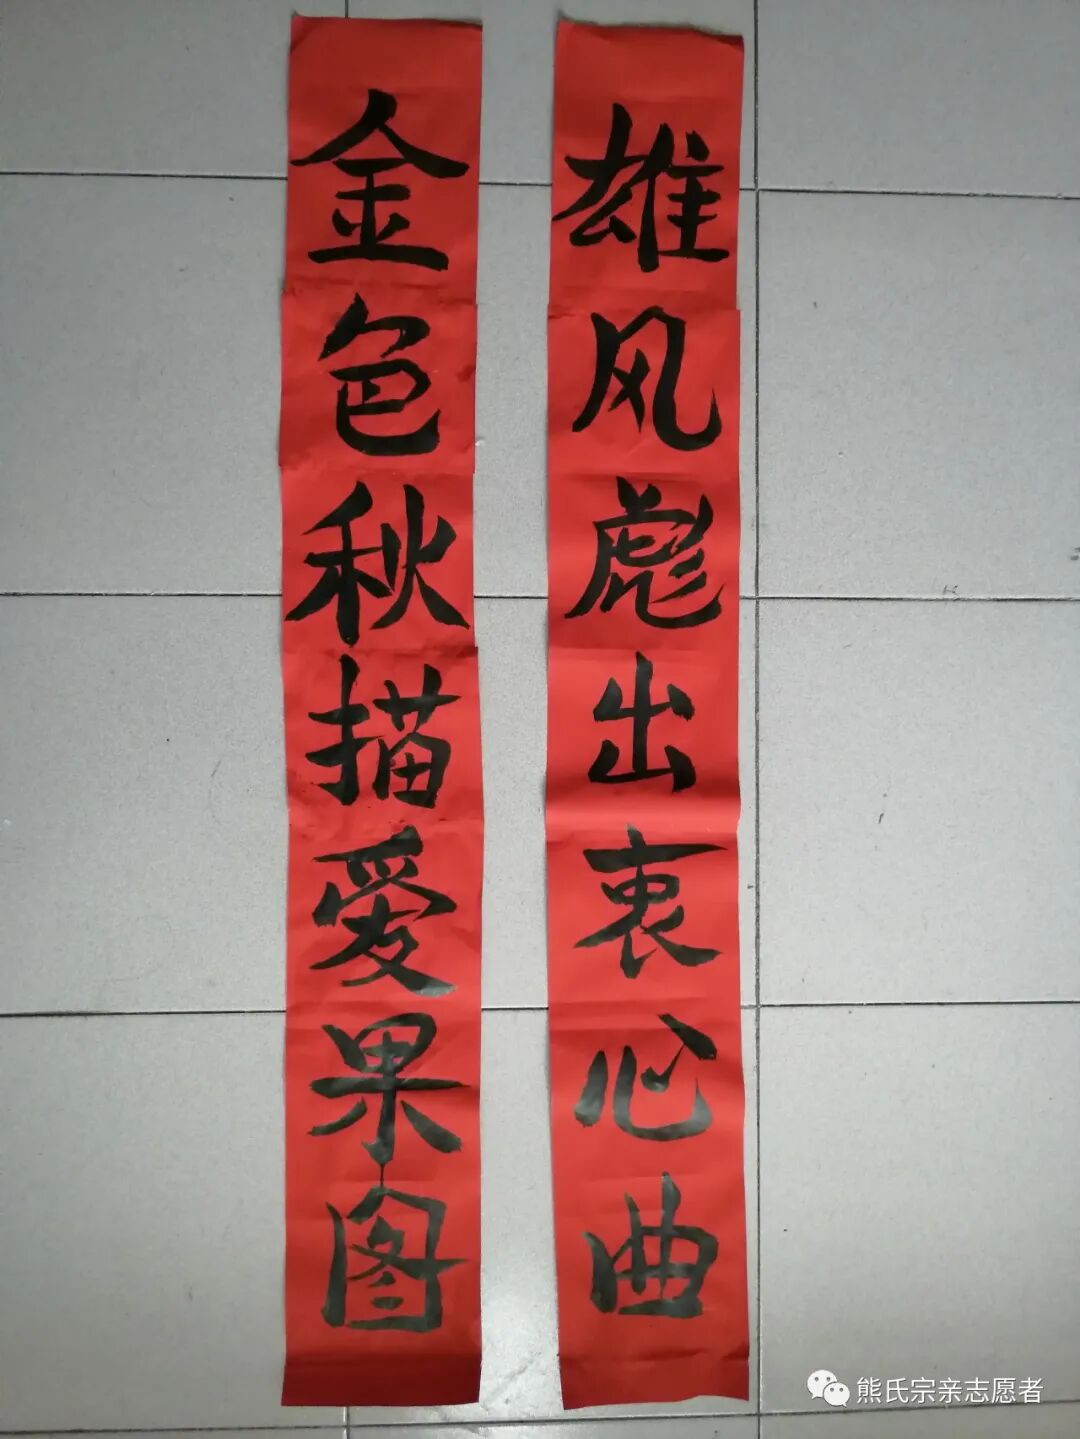 雄风彪出衷心曲
金色秋描爱果图
熊氏宗亲志愿者